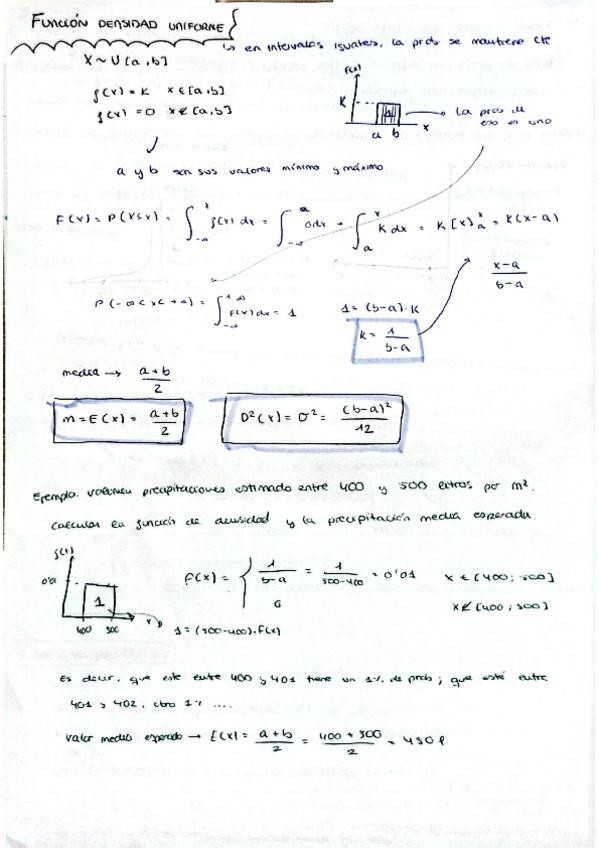 FUNCIÓN DENSIDAD UNIFORME
↳ en intervalos iguales, la prob se mantiene cte
X ~ U [a, b]
f(x) = K x ∈ [a, b]
f(x) = 0 x ∉ [a, b]
f(x)
K
a b x
→ La prob de
eso es uno
a y b son sus valores mínimo y máximo
F(x) = P(X≤x) = ∫_{-∞}^{x} f(x) dx = ∫_{-∞}^{a} 0dx + ∫_{a}^{x} K dx = K [x]_{a}^{x} = K(x-a)
x-a / b-a
P(-∞<x<+∞) = ∫_{-∞}^{+∞} f(x) dx = 1
1 = (b-a)·K
K = 1 / b-a
media → a+b / 2
m = E(x) = a+b / 2
D²(x) = σ² = (b-a)² / 12
Ejemplo. Volumen precipitaciones estimado entre 400 y 500 litros por m².
Calcular la función de densidad y la precipitación media esperada.
f(x)
0'01
1
400 500 x
f(x) = { 1 / b-a = 1 / 500-400 = 0'01 x ∈ [400; 500]
0 x ∉ [400; 500]
1 = (500-400)·f(x)
Es decir, que este entre 400 y 401 tiene un 1% de prob; que esté entre
401 y 402, otro 1% ....
Valor medio esperado → E(x) = a+b / 2 = 400+500 / 2 = 450 l